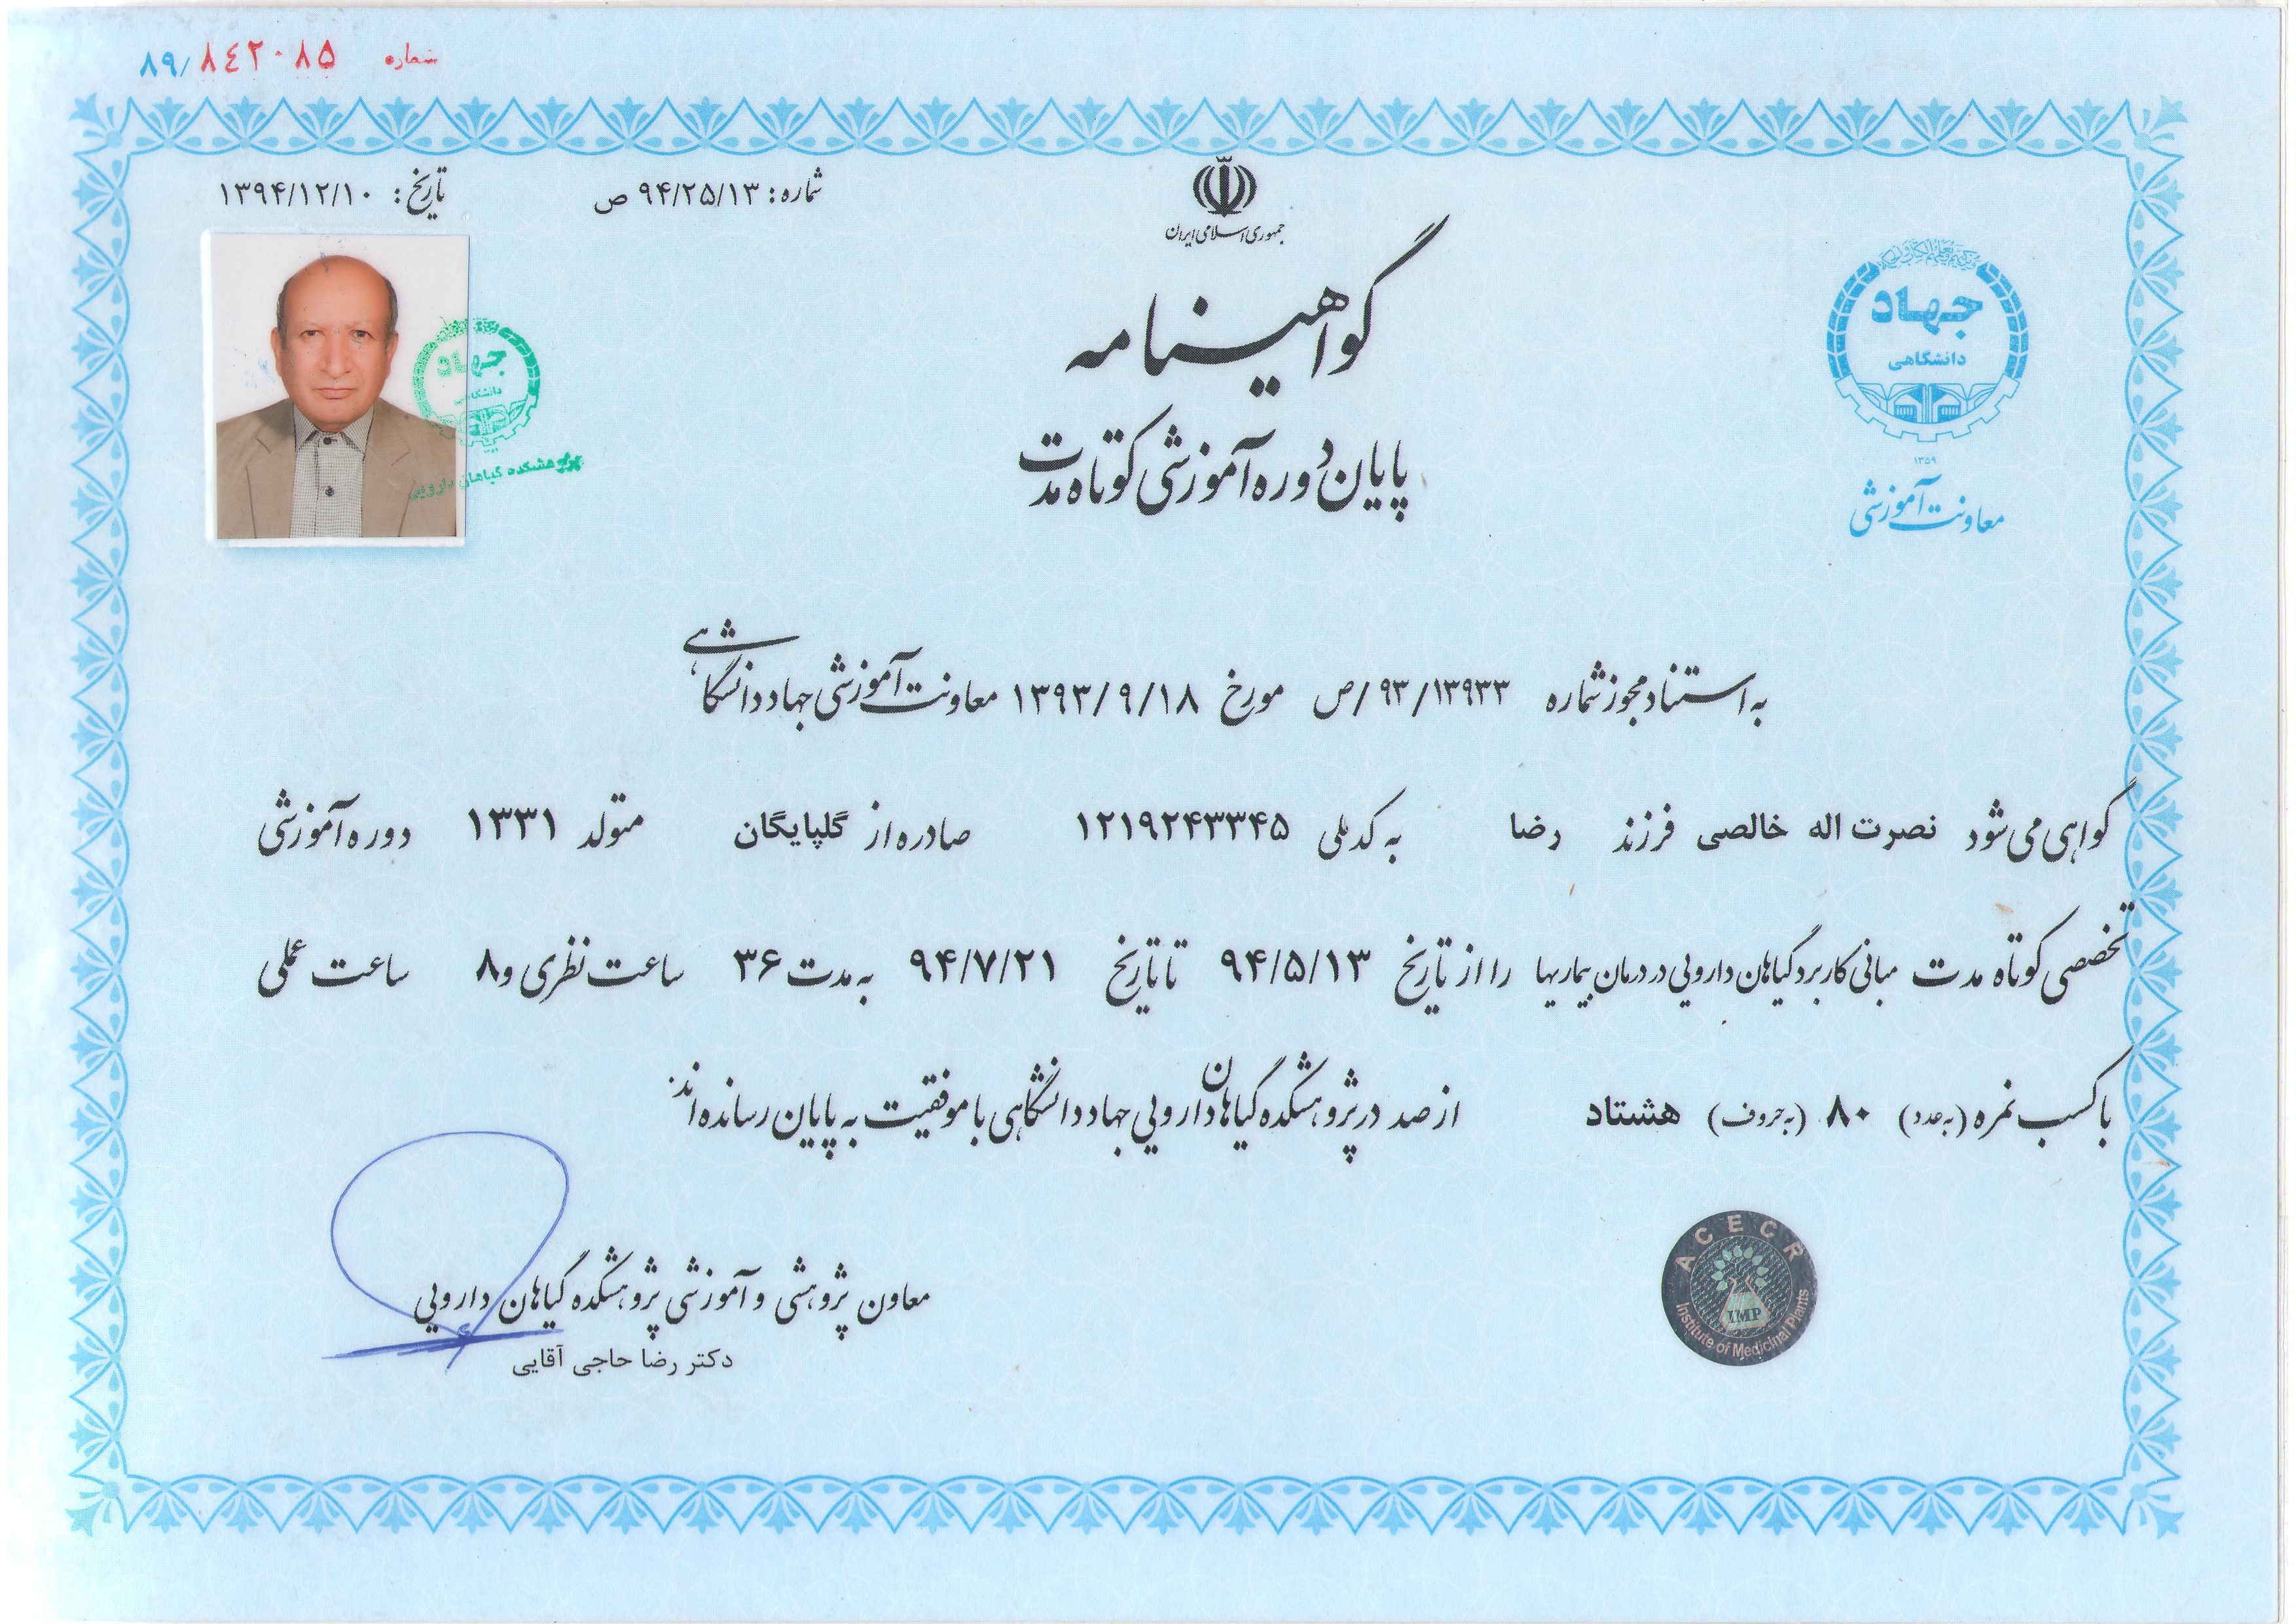 شماره ۸۹/۸۴۲۰۸۵
تاریخ: ۱۳۹۴/۱۲/۱۰
شماره: ۹۴/۲۵/۱۳ ص
جمهوری اسلامی ایران
گواهینامه
پایان دوره آموزشی کوتاه مدت
جهاد
دانشگاهی
۱۳۵۹
معاونت آموزشی
جهاد
دانشگاهی
پژوهشکده گیاهان دارویی
به استناد مجوز شماره ۹۳/۱۳۹۳۳/ص مورخ ۱۳۹۳/۹/۱۸ معاونت آموزشی جهاد دانشگاهی
گواهی می شود نصرت اله خالصی فرزند رضا به کد ملی ۱۲۱۹۲۴۳۳۴۵ صادره از گلپایگان متولد ۱۳۳۱ دوره آموزشی
تخصصی کوتاه مدت مبانی کاربرد گیاهان دارویی در درمان بیماریها را از تاریخ ۹۴/۵/۱۳ تا تاریخ ۹۴/۷/۲۱ به مدت ۳۶ ساعت نظری و ۸ ساعت عملی
با کسب نمره (به عدد) ۸۰ (به حروف) هشتاد از صد در پژوهشکده گیاهان دارویی جهاد دانشگاهی با موفقیت به پایان رسانده اند.
معاون پژوهشی و آموزشی پژوهشکده گیاهان دارویی
دکتر رضا حاجی آقایی
ACECR
IMP
Institute of Medicinal Plants